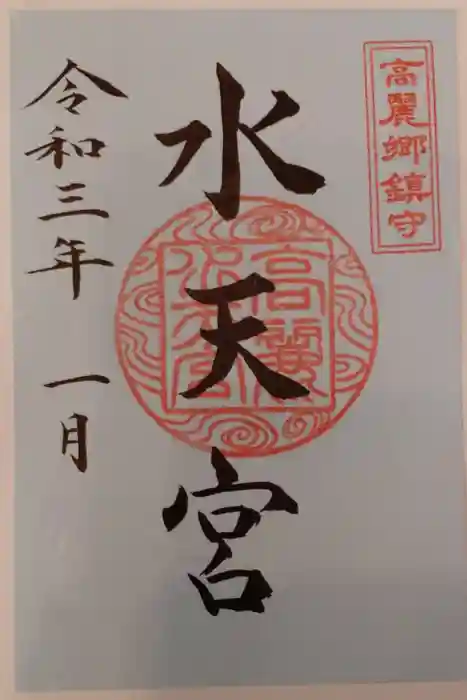 高麗郷鎮守
水天宮
高麗
水天宮
令和三年 一月